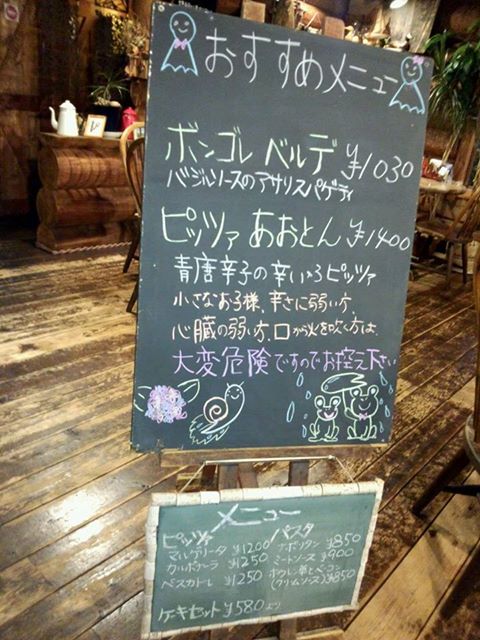 おすすめメニュー
ボンゴレ ベルデ ¥1030
バジルソースのアサリスパゲティ
ピッツァ あおとん ¥1400
青唐辛子の辛い〜3ピッツァ
小さなお子様、辛さに弱い方、
心臓の弱い方、口から火を吹く方は、
大変危険ですのでお控え下さい
メニュー
ピッツァ
マルゲリータ ¥1200
カルボナーラ ¥1250
ペスカトーレ ¥1250
パスタ
ナポリタン ¥850
ミートソース ¥900
ホウレン草とベーコン
(クリームソース) ¥850
ケーキセット ¥580より